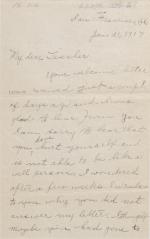 San Francisco, Cal.
Jan. 21, 1917
My dear Teacher
Your welcome letter
was received just a couple
of days ago and I was
glad to hear from you
I am sorry to hear that
you hurt yourself and
is not able to be like a
well person. I wondered
after a few weeks I wrote
to you why you did not
answer my letter. I thought
maybe you had gone to